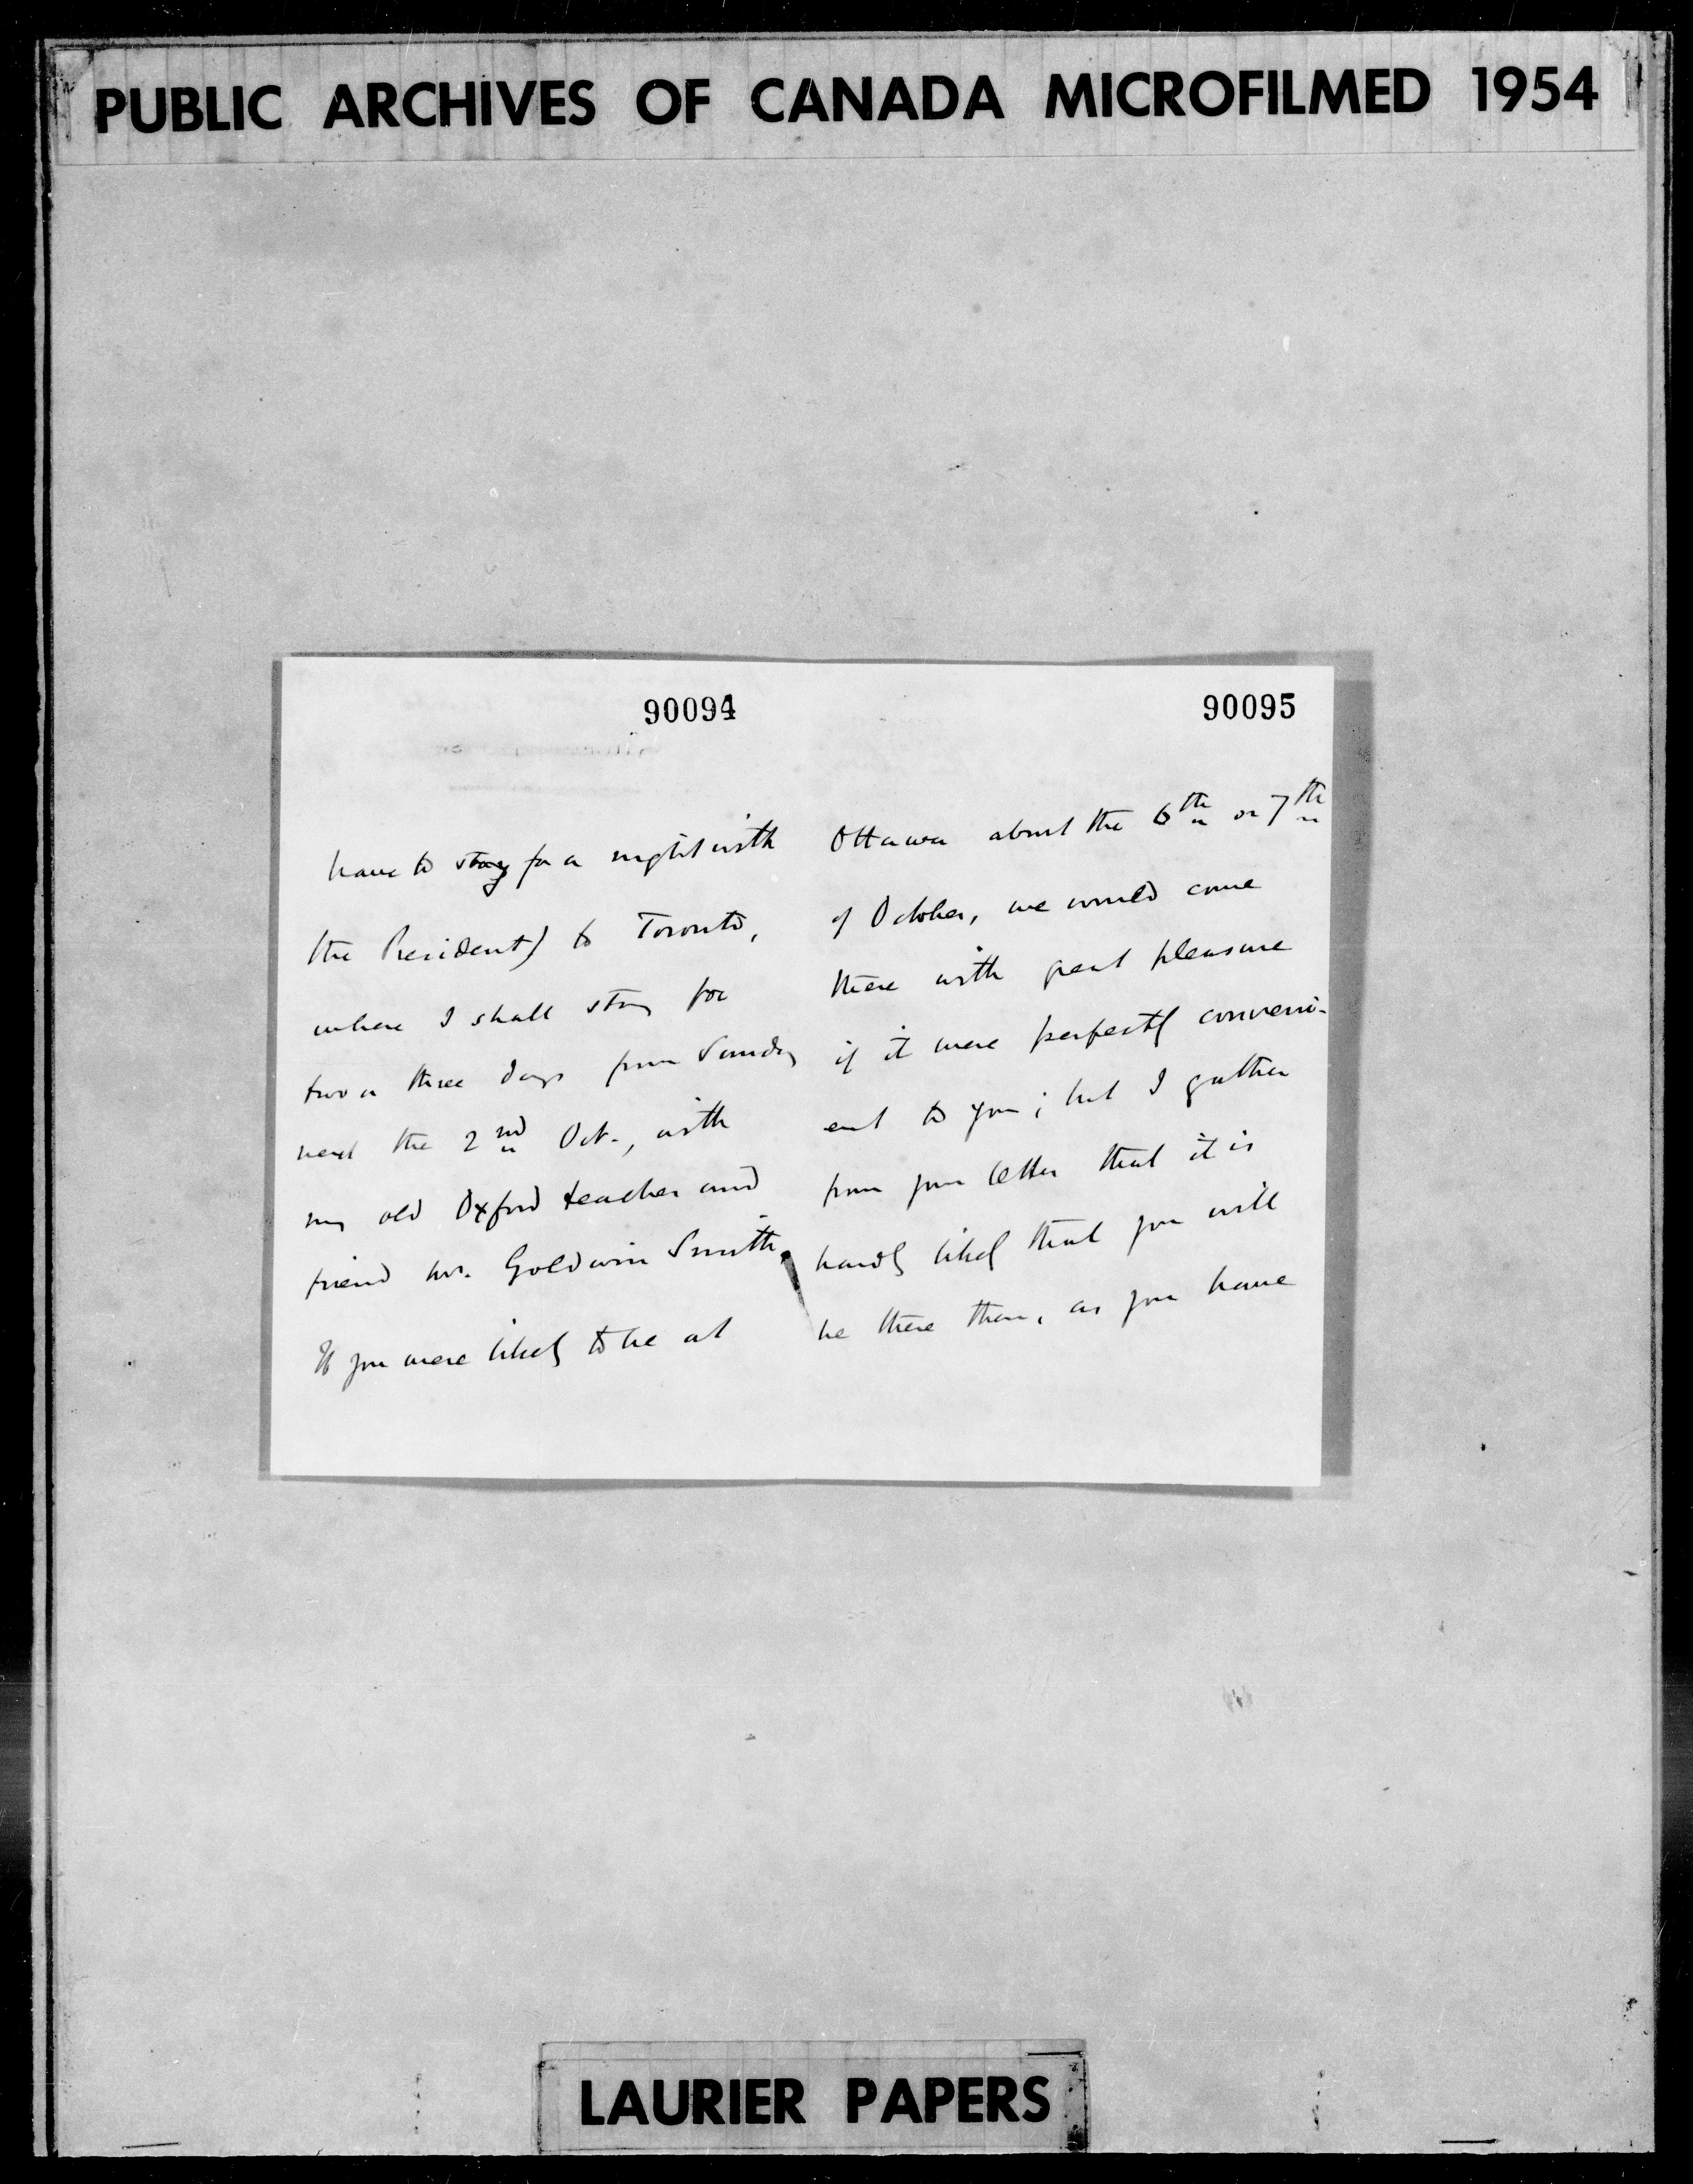 PUBLIC ARCHIVES OF CANADA MICROFILMED 1954
90094
have to stay for a night with
the President) to Toronto,
where I shall stay for
two or three days from Sunday
next the 2nd Oct., with
my old Oxford teacher and
friend Mr. Goldwin Smith.
If you were likely to be at
90095
Ottawa about the 6th or 7th
of October, we would come
there with great pleasure
if it were perfectly conveni-
ent to you; but I gather
from your letter that it is
hardly likely that you will
be there then, as you have
LAURIER PAPERS